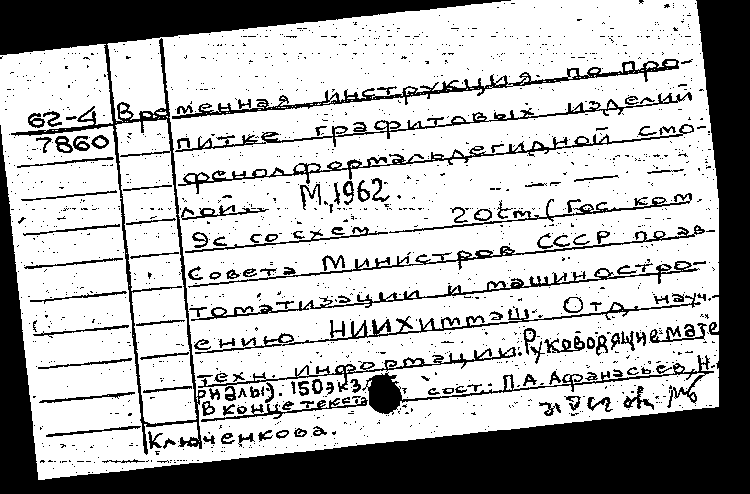 62-4 Временная инструкция по про-
7860 питке графитовых изделий
фенолформальдегидной смо-
лой. М., 1962.
9с. со схем. 20 см. (Гос. ком.
Совета Министров СССР по ав-
томатизации и машиностро-
ению НИИХиммаш. Отд. науч.-
техн. информации. Руководящие мате
риалы). 150 экз.
В конце текста сост.: П.А. Афанасьев, Н.
Ключенкова.